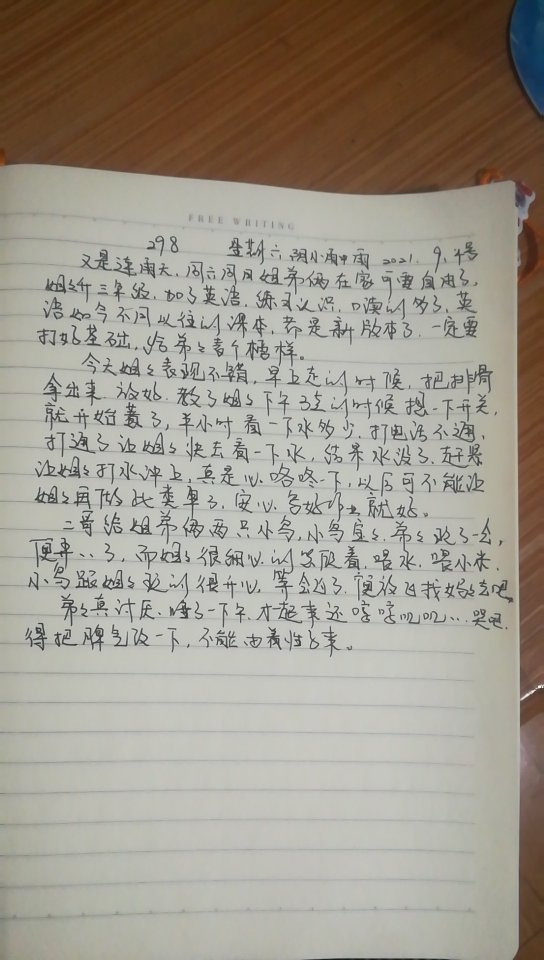 FREE WRITING
298 星期六 阴小雨中雨 2021.9.4号
又是连雨天,周六周日姐弟俩在家可要自由了,
姐々升三年级,加了英语,练习认识,口读的多了,英
语如今不同以往的课本,都是新版本了,一定要
打好基础,给弟々青个榜样。
今天姐々表现不错,早上走的时候,把排骨
拿出来放好,教了姐々下午3点的时候摁一下开关,
就开始蒸了,半小时看一下水多少,打电话不通,
打通了让姐々快去看一下水,结果水没了,赶紧
让姐々打水冲上,真是心咯咚一下,以后可不能让
姐々再做此类事了,安心写好作业就好。
二哥给姐弟俩两只小鸟,小鸟宝々,弟々玩了一会,
便弃‥了,而姐々很细心的照顾着,喂水,喂小米,
小鸟跟姐々玩的很开心,等会飞了,便放飞找妈々去吧
弟々真讨厌,睡了一下午,才起来还哼哼呗呗…哭吧
得把脾气改一下,不能由着性子来。